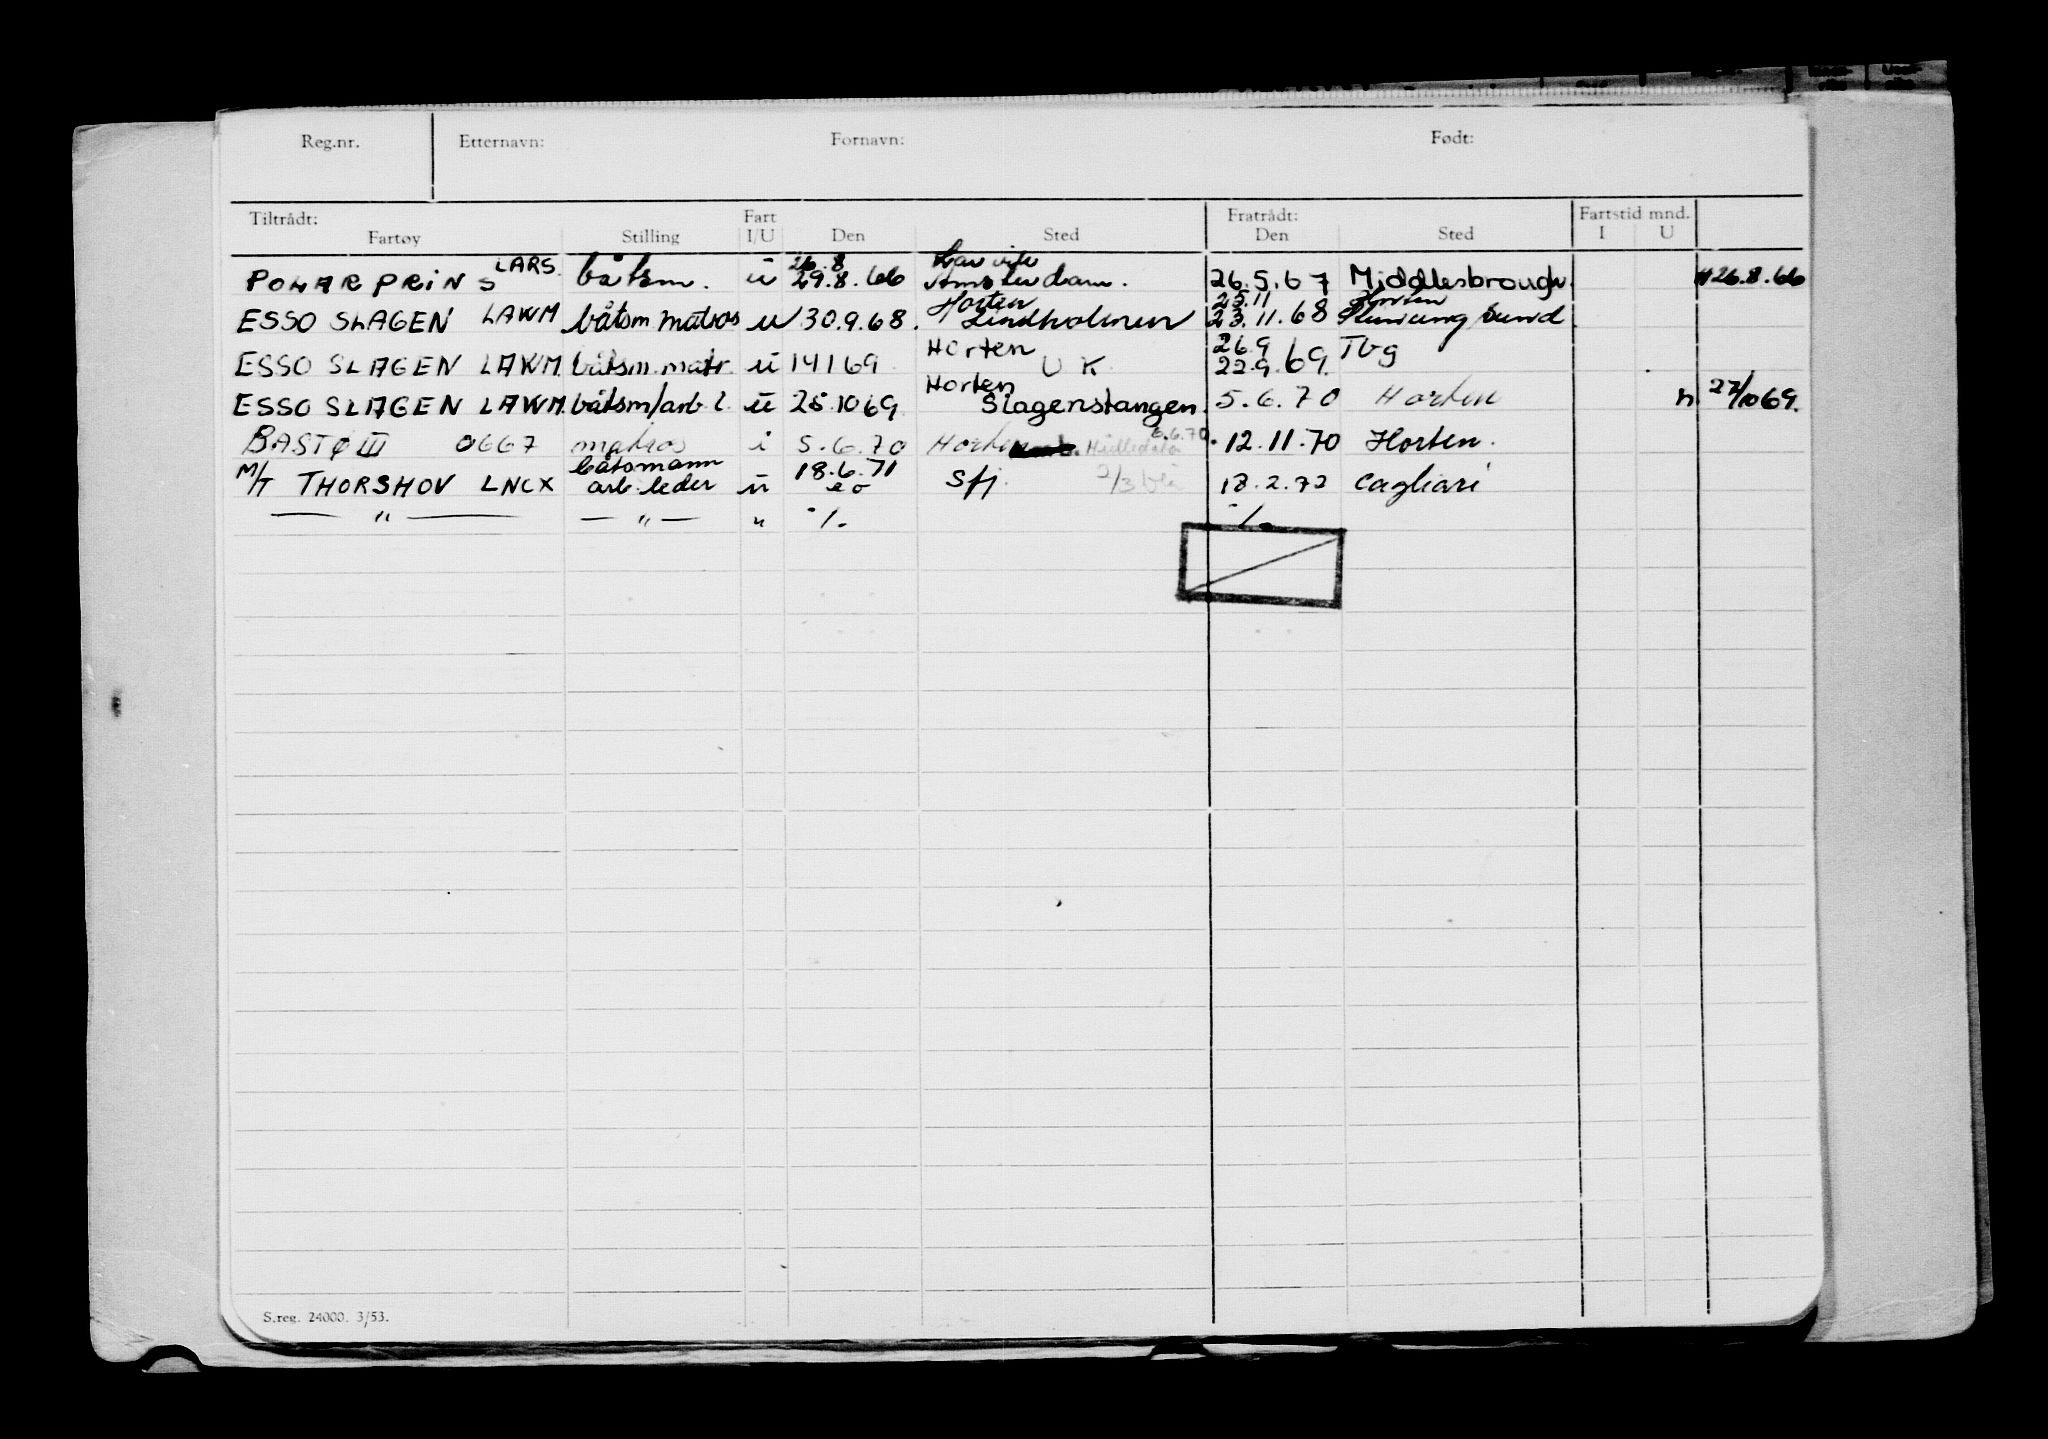 Reg.nr. Etternavn: Fornavn: Født:
Tiltrådt: Fart Fratrådt: Fartstid mnd.
Fartøy Stilling I/U Den Sted Den Sted I U
LARS. 26.8 Larvik
POLAR PRINS båtsm. u 29.8.66 Amsterdam. 26.5.67 Middlesbrough. 26.8.66
Horten 25.11
ESSO SLAGEN LAWM båtsm matros u 30.9.68. Lindholmen 23.11.68 sund.
Horten 26.9 Tbg
ESSO SLAGEN LAWM båtsm matr. u 14169 U K 22.9.69.
Horten
ESSO SLAGEN LAWM båtsm/arb l. u 25.1069 Slagenstangen. 5.6.70 Horten n 27/1069.
6.6.70
BASTØ III 0667 matros i 5.6.70 12.11.70 Horten.
båtsmann 18.6.71
M/T THORSHOV LNCX arb. leder u e o Sfj 2/3 18.2.72 Cagliari
— " — — " — " ·/. ·/.
S.reg. 24000. 3/53.